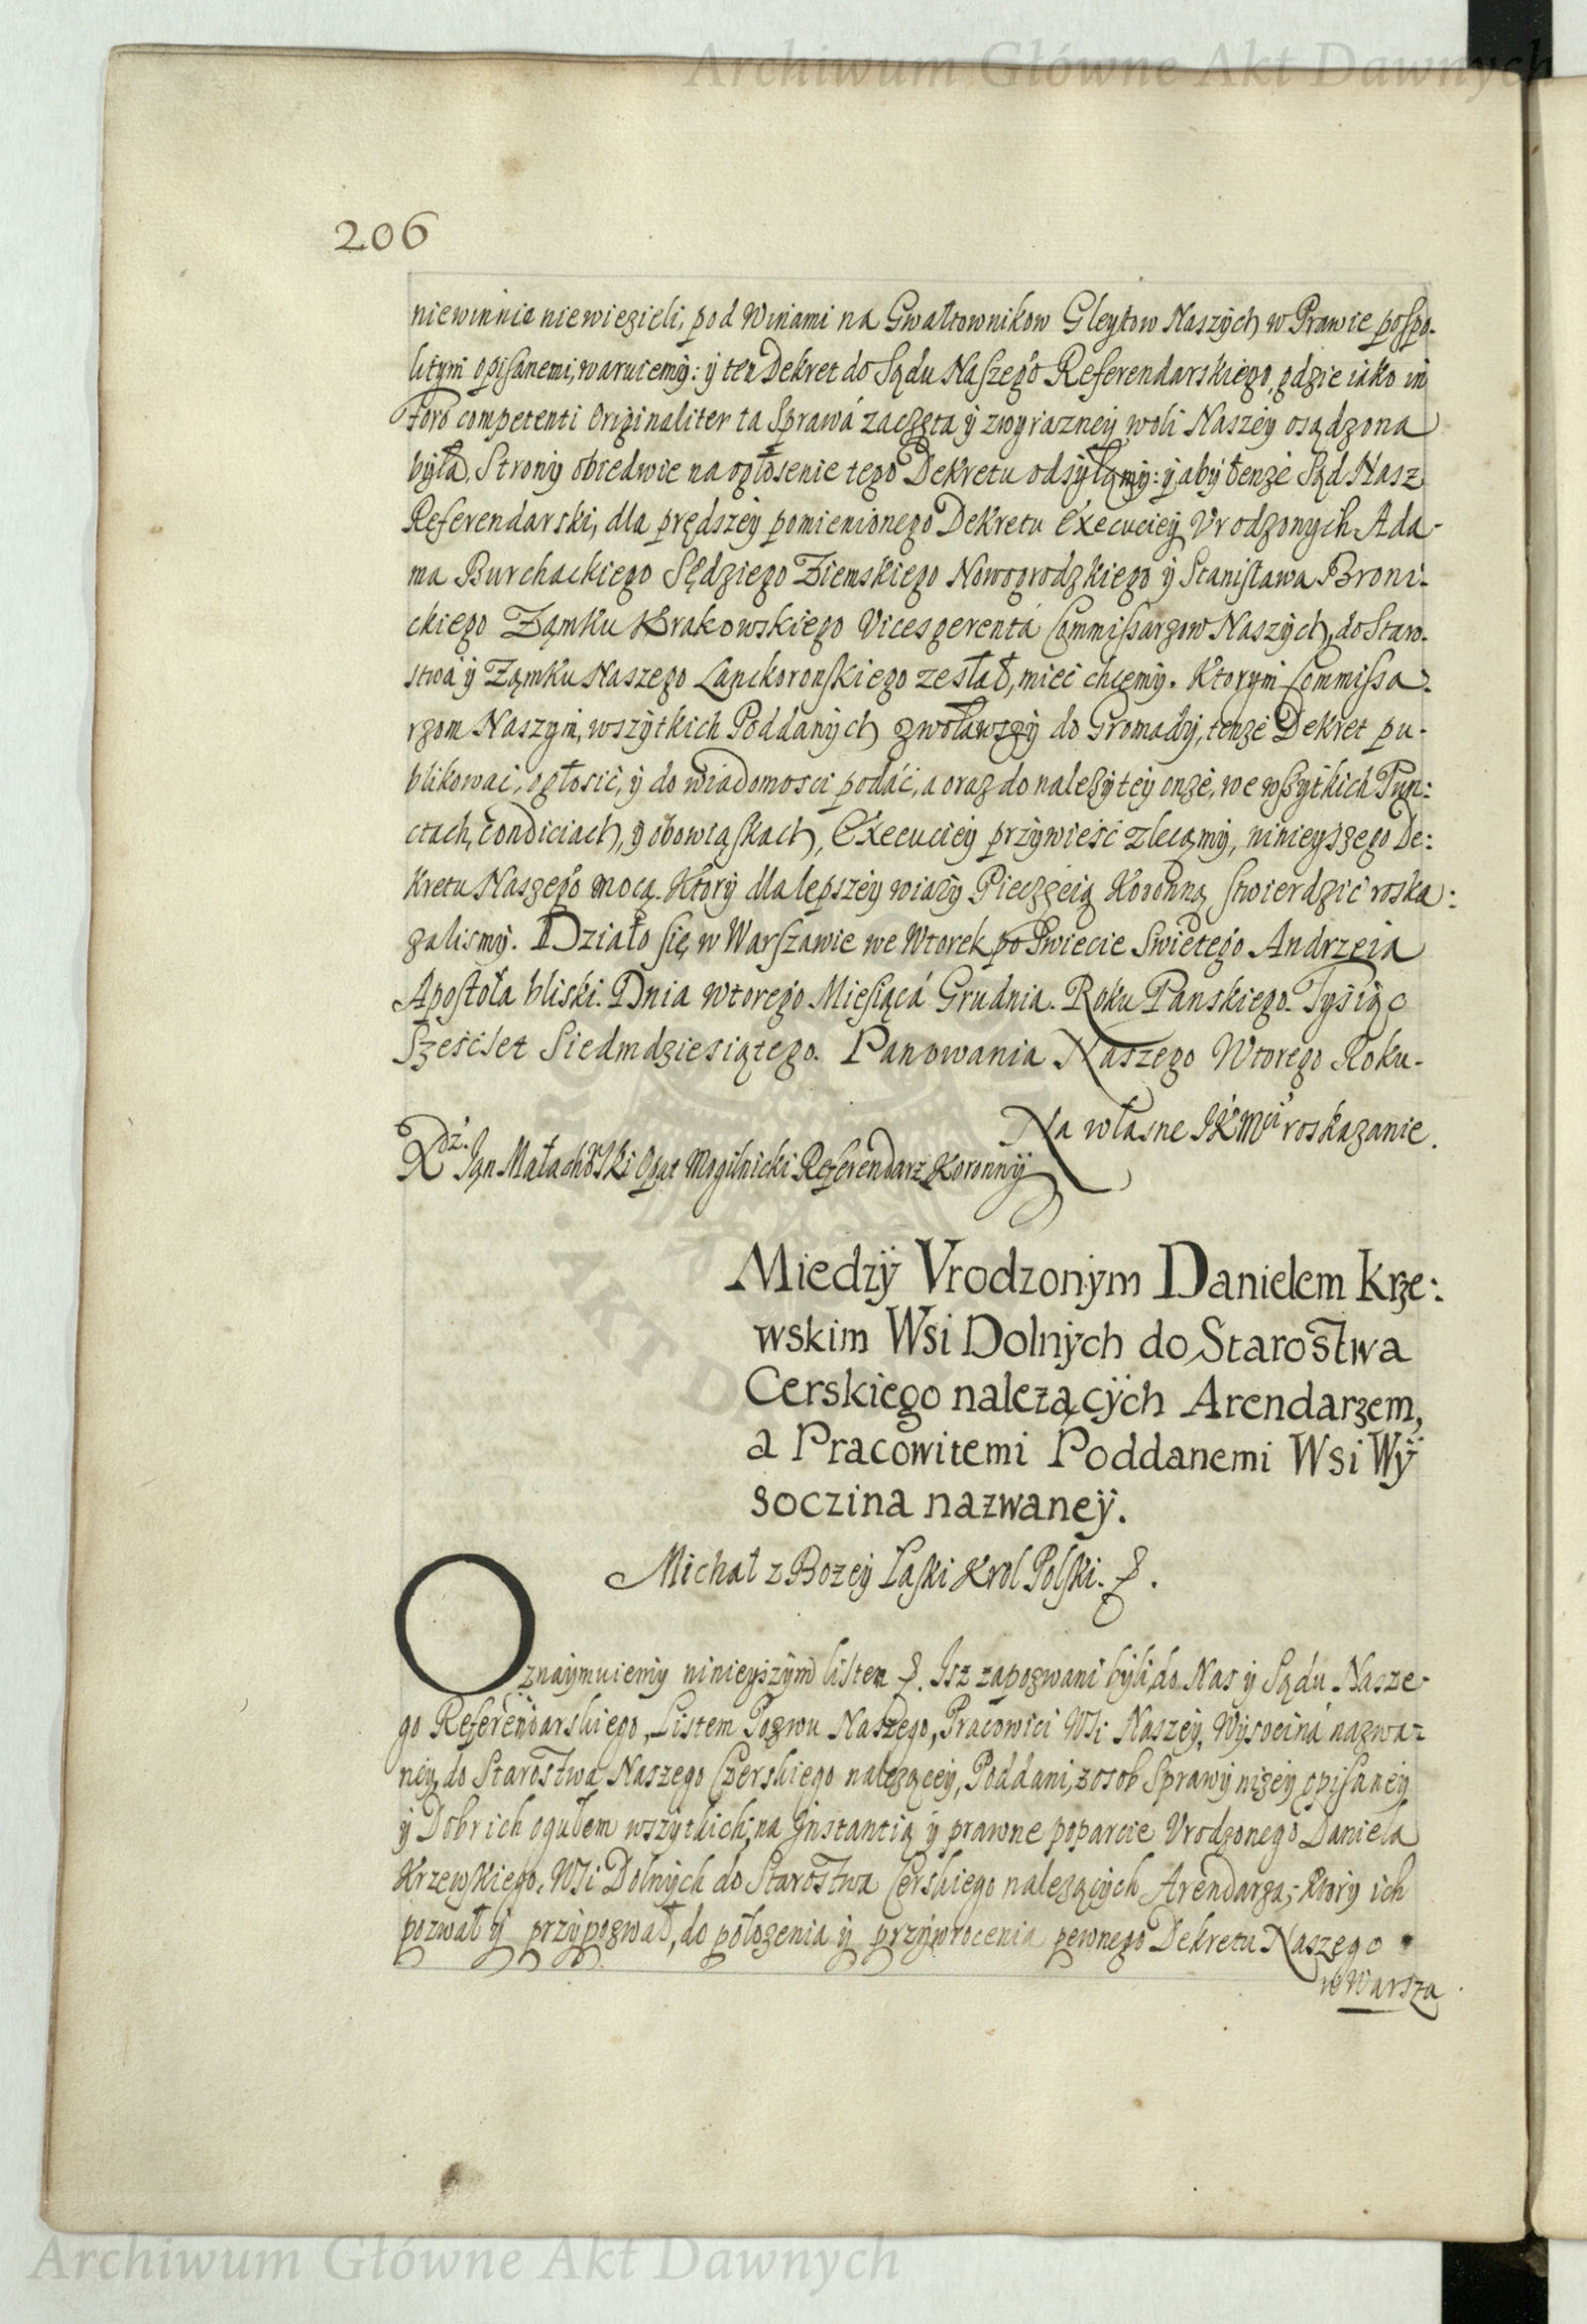 Archiwum Główne Akt Dawnych
206
niewinnie niewięzieli, pod Winami na Gwałtownikow Gleytow Naszych w Prawie pospo-
litym opisanemi, waruiemy: y ten Dekret do Sądu Naszego Referendarskiego, gdzie iako in
foro competenti Originaliter ta Sprawá zaczęta y zwyrazney woli Naszey osądzona
była, Strony obiedwie na ogłosenie tego Dekretu odsyłamy: y aby tenże Sąd Nasz
Referendarski, dla prędszey pomienionego Dekretu Execuciey Vrodzonych Ada-
ma Burchackiego Sędziego Ziemskiego Nowogrodzkiego y Stanisława Broni-
ckiego Zamku Krakowskiego Vicesgerentá Commissarzow Naszych, do Staro-
stwá y Zamku Naszego Lanckoronskiego zesłał, mieć chcemy. Ktorym Commissa-
rzom Naszym, wszytkich Poddanych zwoławszy do Gromady, tenże Dekret pu-
blikować, ogłosić, y do wiadomosci podáć, a oraz do należytey onże, we wszytkich Pun:
ctach, Condiciach, y obowiąskach, Execuciey przywieść zlecamy, ninieyszego De:
kretu Naszego mocą. Ktory dla lepszey wiary Pieczęcią Koronną stwierdzić roska:
zalismy. Działo się w Warszawie we Wtorek po Swiecie Swietego Andrzeia
Apostoła bliski. Dnia wtorego Miesiącá Grudnia. Roku Panskiego. Tysiąc
Sześćset Siedmdziesiątego. Panowania Naszego Wtorego Roku.
Na własne JKMci roskazanie.
Xdz. Jan Małachowski Opat Mogilnicki Referendarz Koronny
Miedzÿ Vrodzonym Danielem Krze:
wskim Wsi Dolnych do Starostwa
Cerskiego należącÿch Arendarzem,
a Pracowitemi Poddanemi Wsi Wÿ
soczina nazwaneÿ.
Michał z Bozey Łaski Krol Polski. &.
Oznaymuiemy ninieyszym listem &. Isz zapozwani byli do Nas y Sądu Nasze-
go Referendarskiego, Listem Pozwu Naszego, Pracowici Wsi Naszey, Wysociná nazwa-
ney, do Starostwa Naszego Czerskiego należącey, Poddani, z osob Sprawy niżey opisaney
y Dobr ich ogułem wszytkich, na Instantią y prawne poparcie Vrodzonego Daniela
Krzewskiego, Wsi Dolnych do Starostwa Cerskiego należących Arendarza, Ktory ich
pozwał y przypozwał, do położenia y przywrocenia pewnego Dekretu Naszego
w Warsza
Archiwum Główne Akt Dawnych